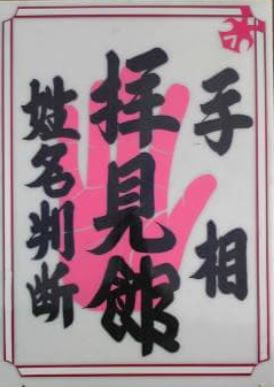 手相
拝見館
姓名判断